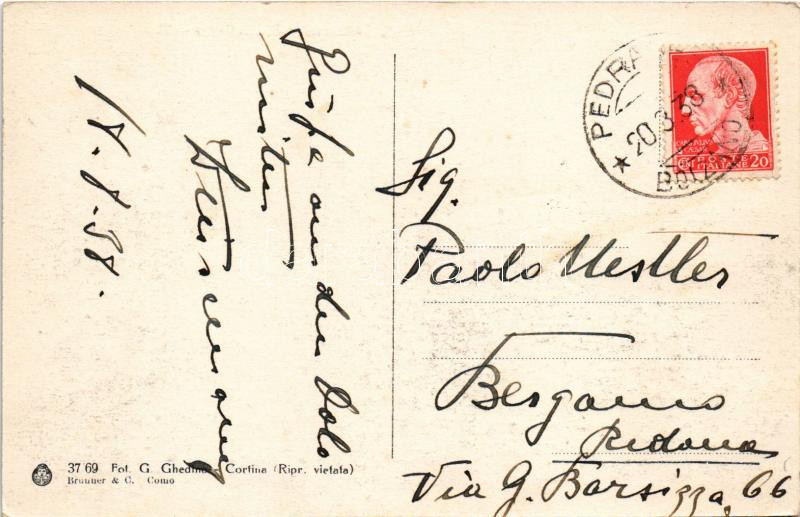 Grüsse aus den Dolo
miten
18. 8. 38.
PEDRA
20.8.38
BOLZANO
POSTE ITALIANE 20
Sig.
Paolo Mestler
Bergamo
Redona
Via G. Barsizza, 66
37 69 Fot. G. Ghedina Cortina (Ripr. vietata)
Brunner & C. Como